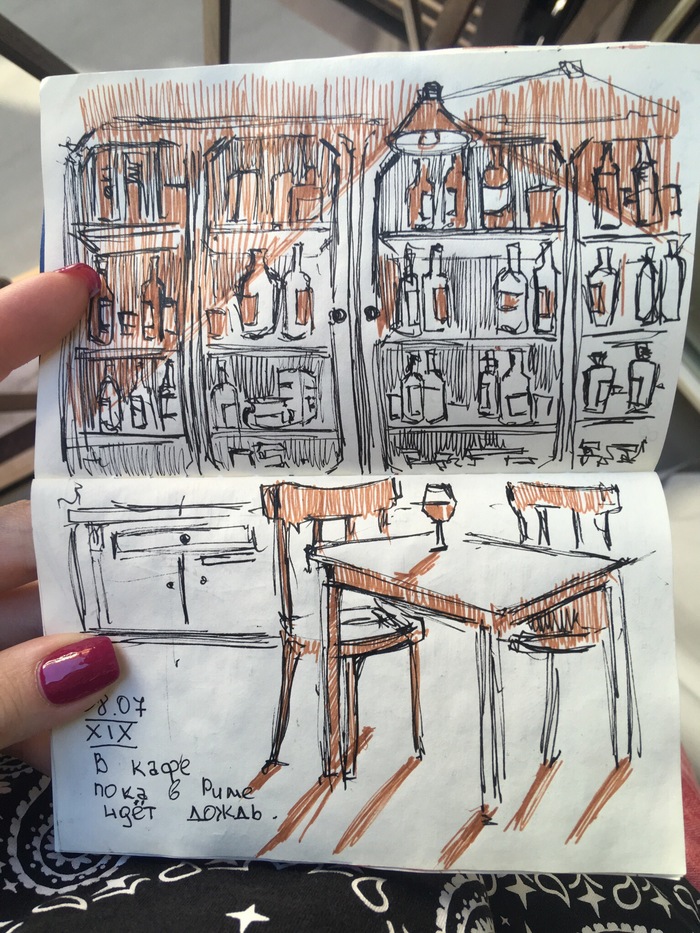 8.07
XIX
В кафе
пока в Риме
идёт дождь.